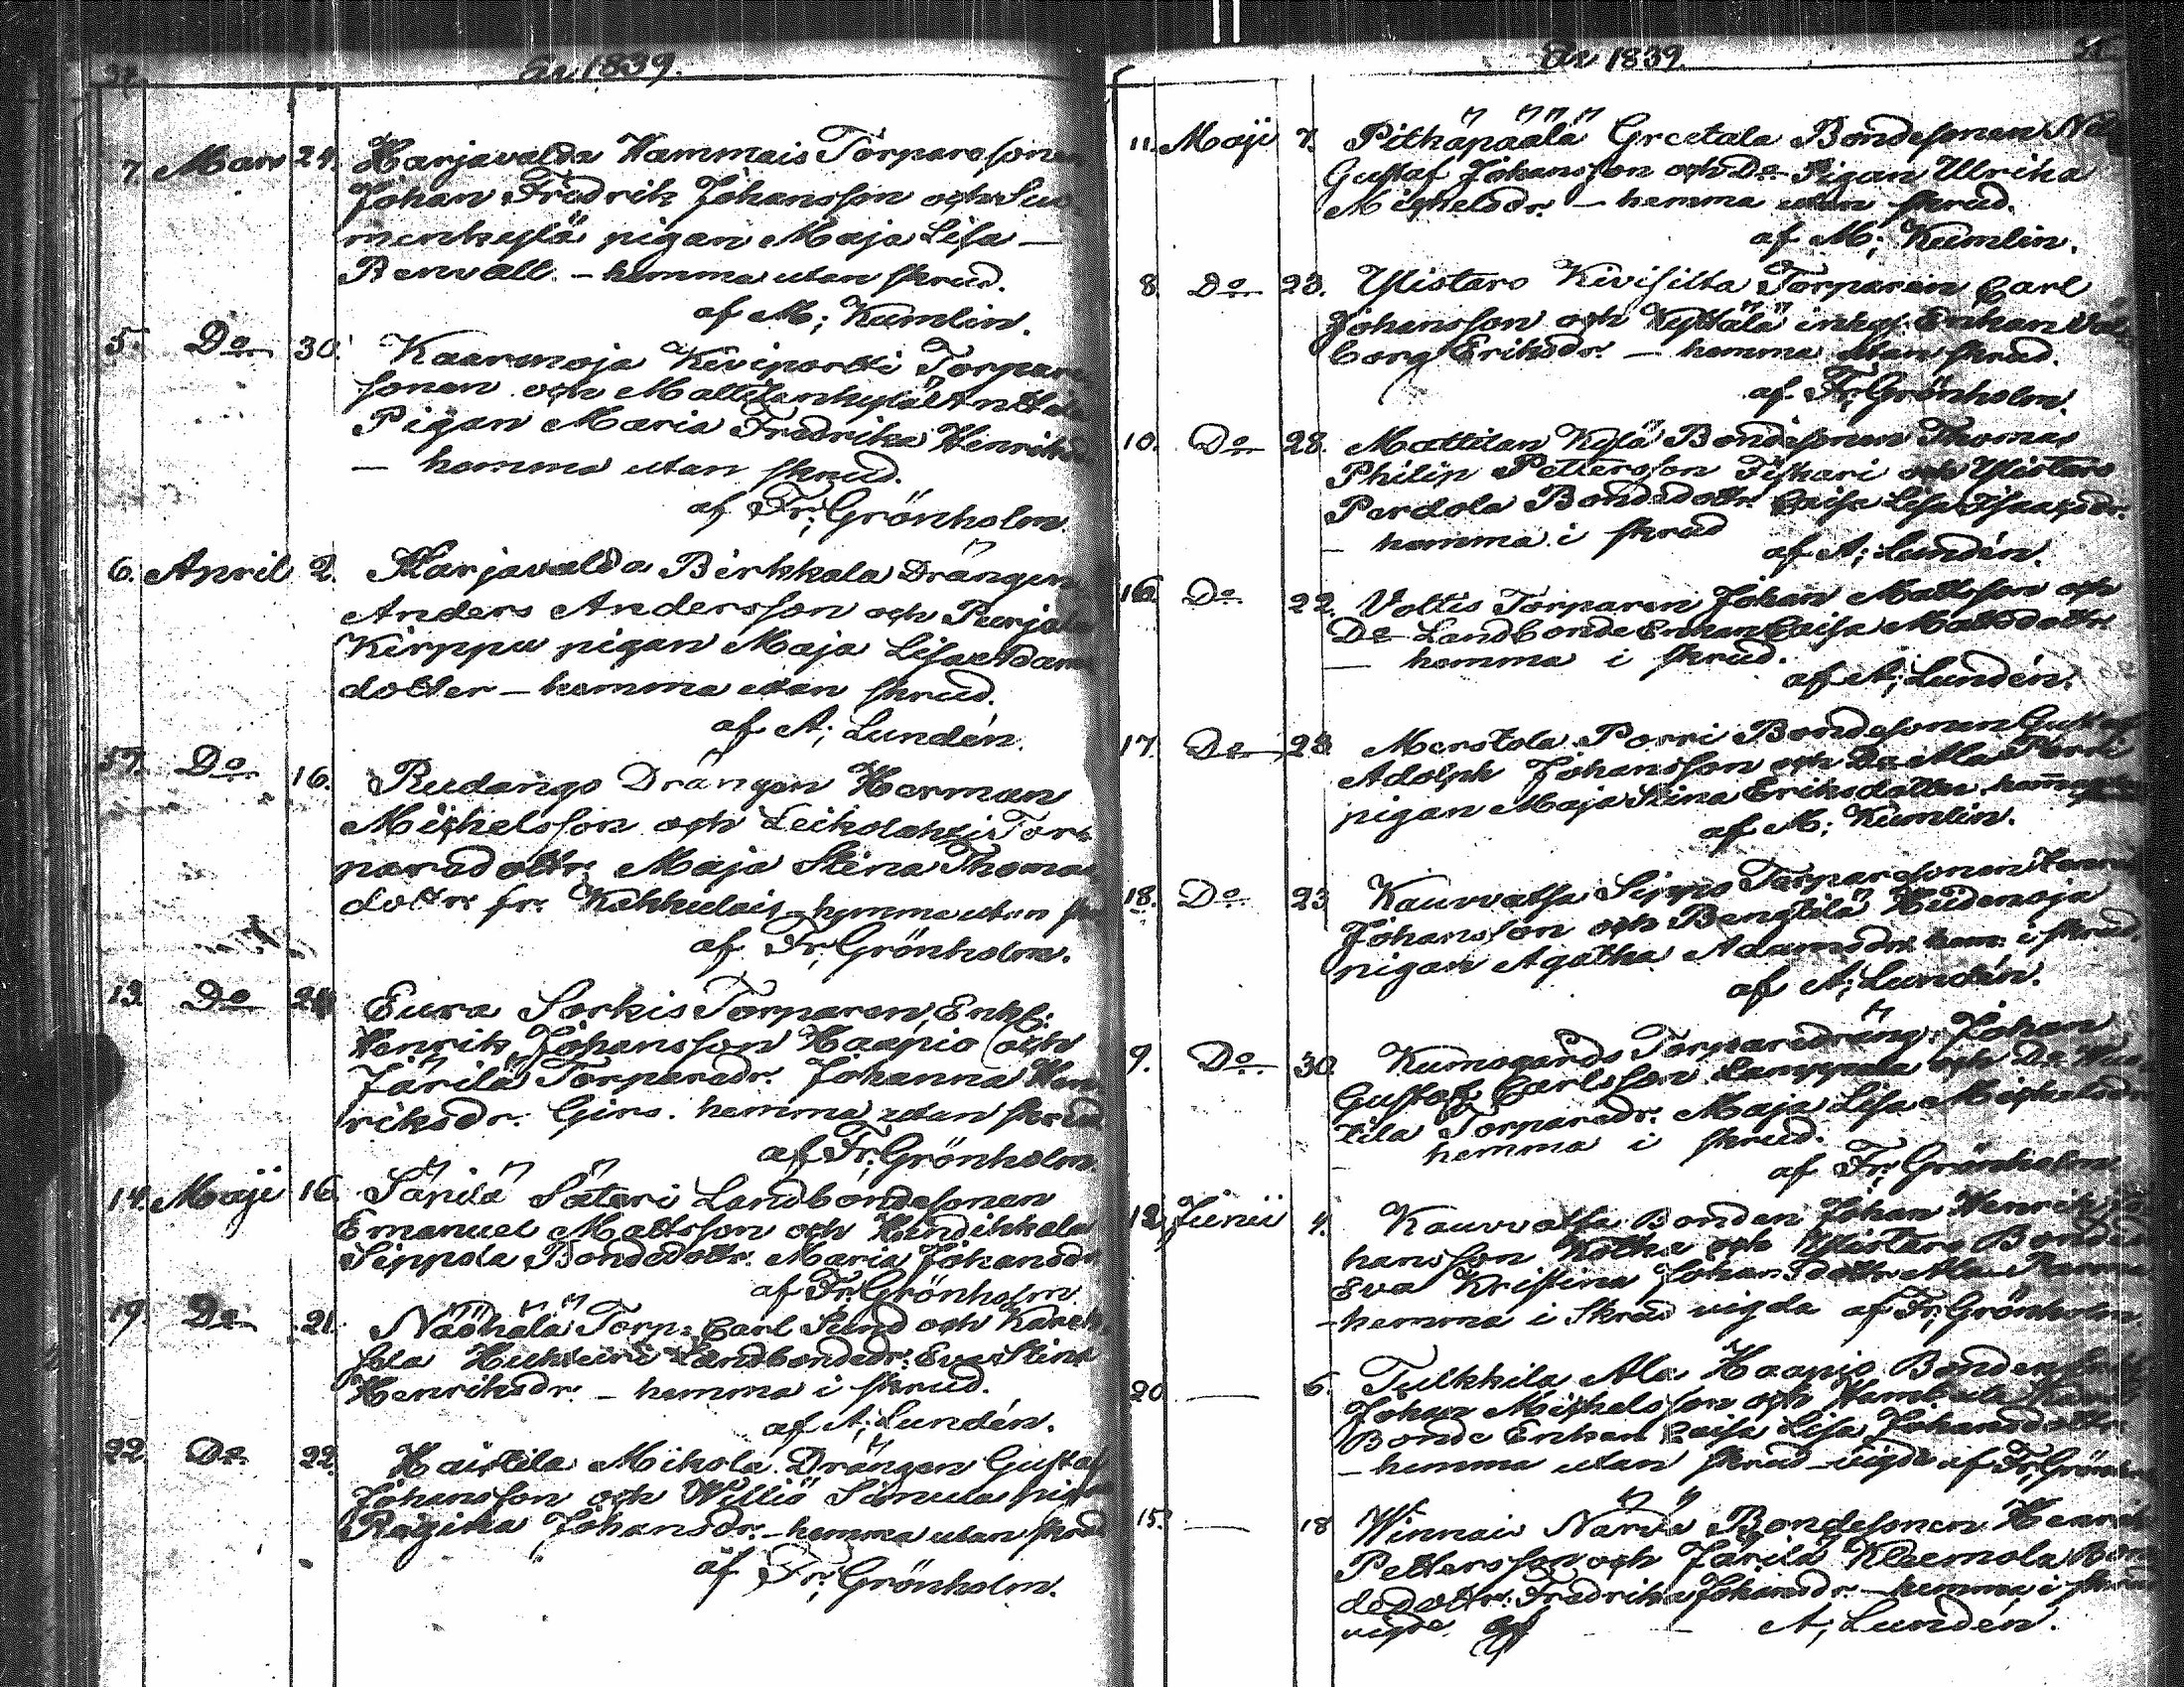 År 1839.
7. Mars 24. Harjavalda Hammais Torparesonen
Johan Fredrik Johansson och Suo-
menkylä pigan Maja Lisa
Renvall. – hemma utan skrud.
af M; Kumlin.
5. Do 30. Kaarenoja Kiviportti Torpare
sonen och Mattilankylä Anttila
Pigan Maria Fredrika Henriksd
– hemma utan skrud.
af Fr; Grönholm
6. April 2. Harjavalda Birkkala Drängen
Anders Andersson och Purjala
Kirppu pigan Maja Lisa Adams
dotter – hemma utan skrud.
af A; Lundén.
Do 16. Rudango Drängen Herman
Michelsson och Leikolahti Tor-
paredottr. Maja Stina Thomas
dottr. fr. Kakkulais – hemma utan
af Fr; Grönholm.
13. Do 24 Eura Sorkis Torparen, Enkl:
Henrik Johansson Haapio och
Järilä Torparedr. Johanna Hen-
riksdr. Girs. hemma utan skrud
af Fr; Grönholm.
14. Maji 16. Säpilä Säteri Landbondesonen
Emanuel Mattsson och Hendikkala
Sippola Bondedottr. Maria Johansdr
af Fr; Grönholm
19. Do 21. Naohala Torp: Carl Sund och
Landbondedr: Eva Stina
Henriksdr. – hemma i skrud.
af A; Lundén.
22. Do 22. Haistila Mikola Drängen Gustaf
Johansson och Willio Simula pigan
Regina Johansdr. – hemma utan skrud
af Fr; Grönholm.
År 1839.
11. Maji 7. Pitkäpäälä Greetala Bondesonen
Gustaf Johansson och Do Pigan Ulrika
Michelsdr. – hemma utan skrud.
af M; Kumlin.
8. Do 23. Ylistaro Kivisilta Torparen Carl
Johansson och Kyttälä inhys Enkan Val-
borg Eriksdr. – hemma utan skrud.
af Fr; Grönholm.
10. Do 28. Mattilan Kylä Bondesonen Thomas
Philip Pettersson Fiskari och Ylistaro
Perdola Bondedottr. Caisa Lisa Isaacsdr.
– hemma i skrud
af A; Lundén.
16. Do 22. Voltis Torparen Johan Mattsson och
Do Landbonde Enkan Caisa Mattsdottr.
– hemma i skrud.
af A; Lundén.
17. Do 23. Merstola Porri Bondesonen Gustaf
Adolph Johansson och Do Ala Porri
pigan Maja Stina Eriksdotter
af M; Kumlin.
18. Do 23 Kauvatsa Sippo Torparesonen
Johansson och Bengtilä Hiidenoja
pigan Agatha Adamsdr. hem: i skrud.
af A; Lundén.
9. Do 30. Kumogårds Torparedräng Johan
Gustaf Carlsson Lamppala och Do
tila Torparedr. Maja Lisa Michelsdr
hemma i skrud.
af Fr; Grönholm
12. Junii 4. Kauvatsa Bonden Johan Henrik Jo-
hansson Kotka och Ylistaro Bonded
Eva Kristina Johansdottr. Ala
– hemma i skrud vigda af Fr; Grönholm
20. — 6. Tulkkila Ala Haapio Bonden
Johan Michelsson och
Bonde Enkan Caisa Lisa Johansdottr
– hemma utan skrud – vigda af Fr; Grönholm
15. — 18 Winnais Narva Bondesonen Henrik
Pettersson och Järilä Kleemola Bon-
dedottr. Fredrika Johansdr. – hemma i skrud
vigde af A; Lundén.